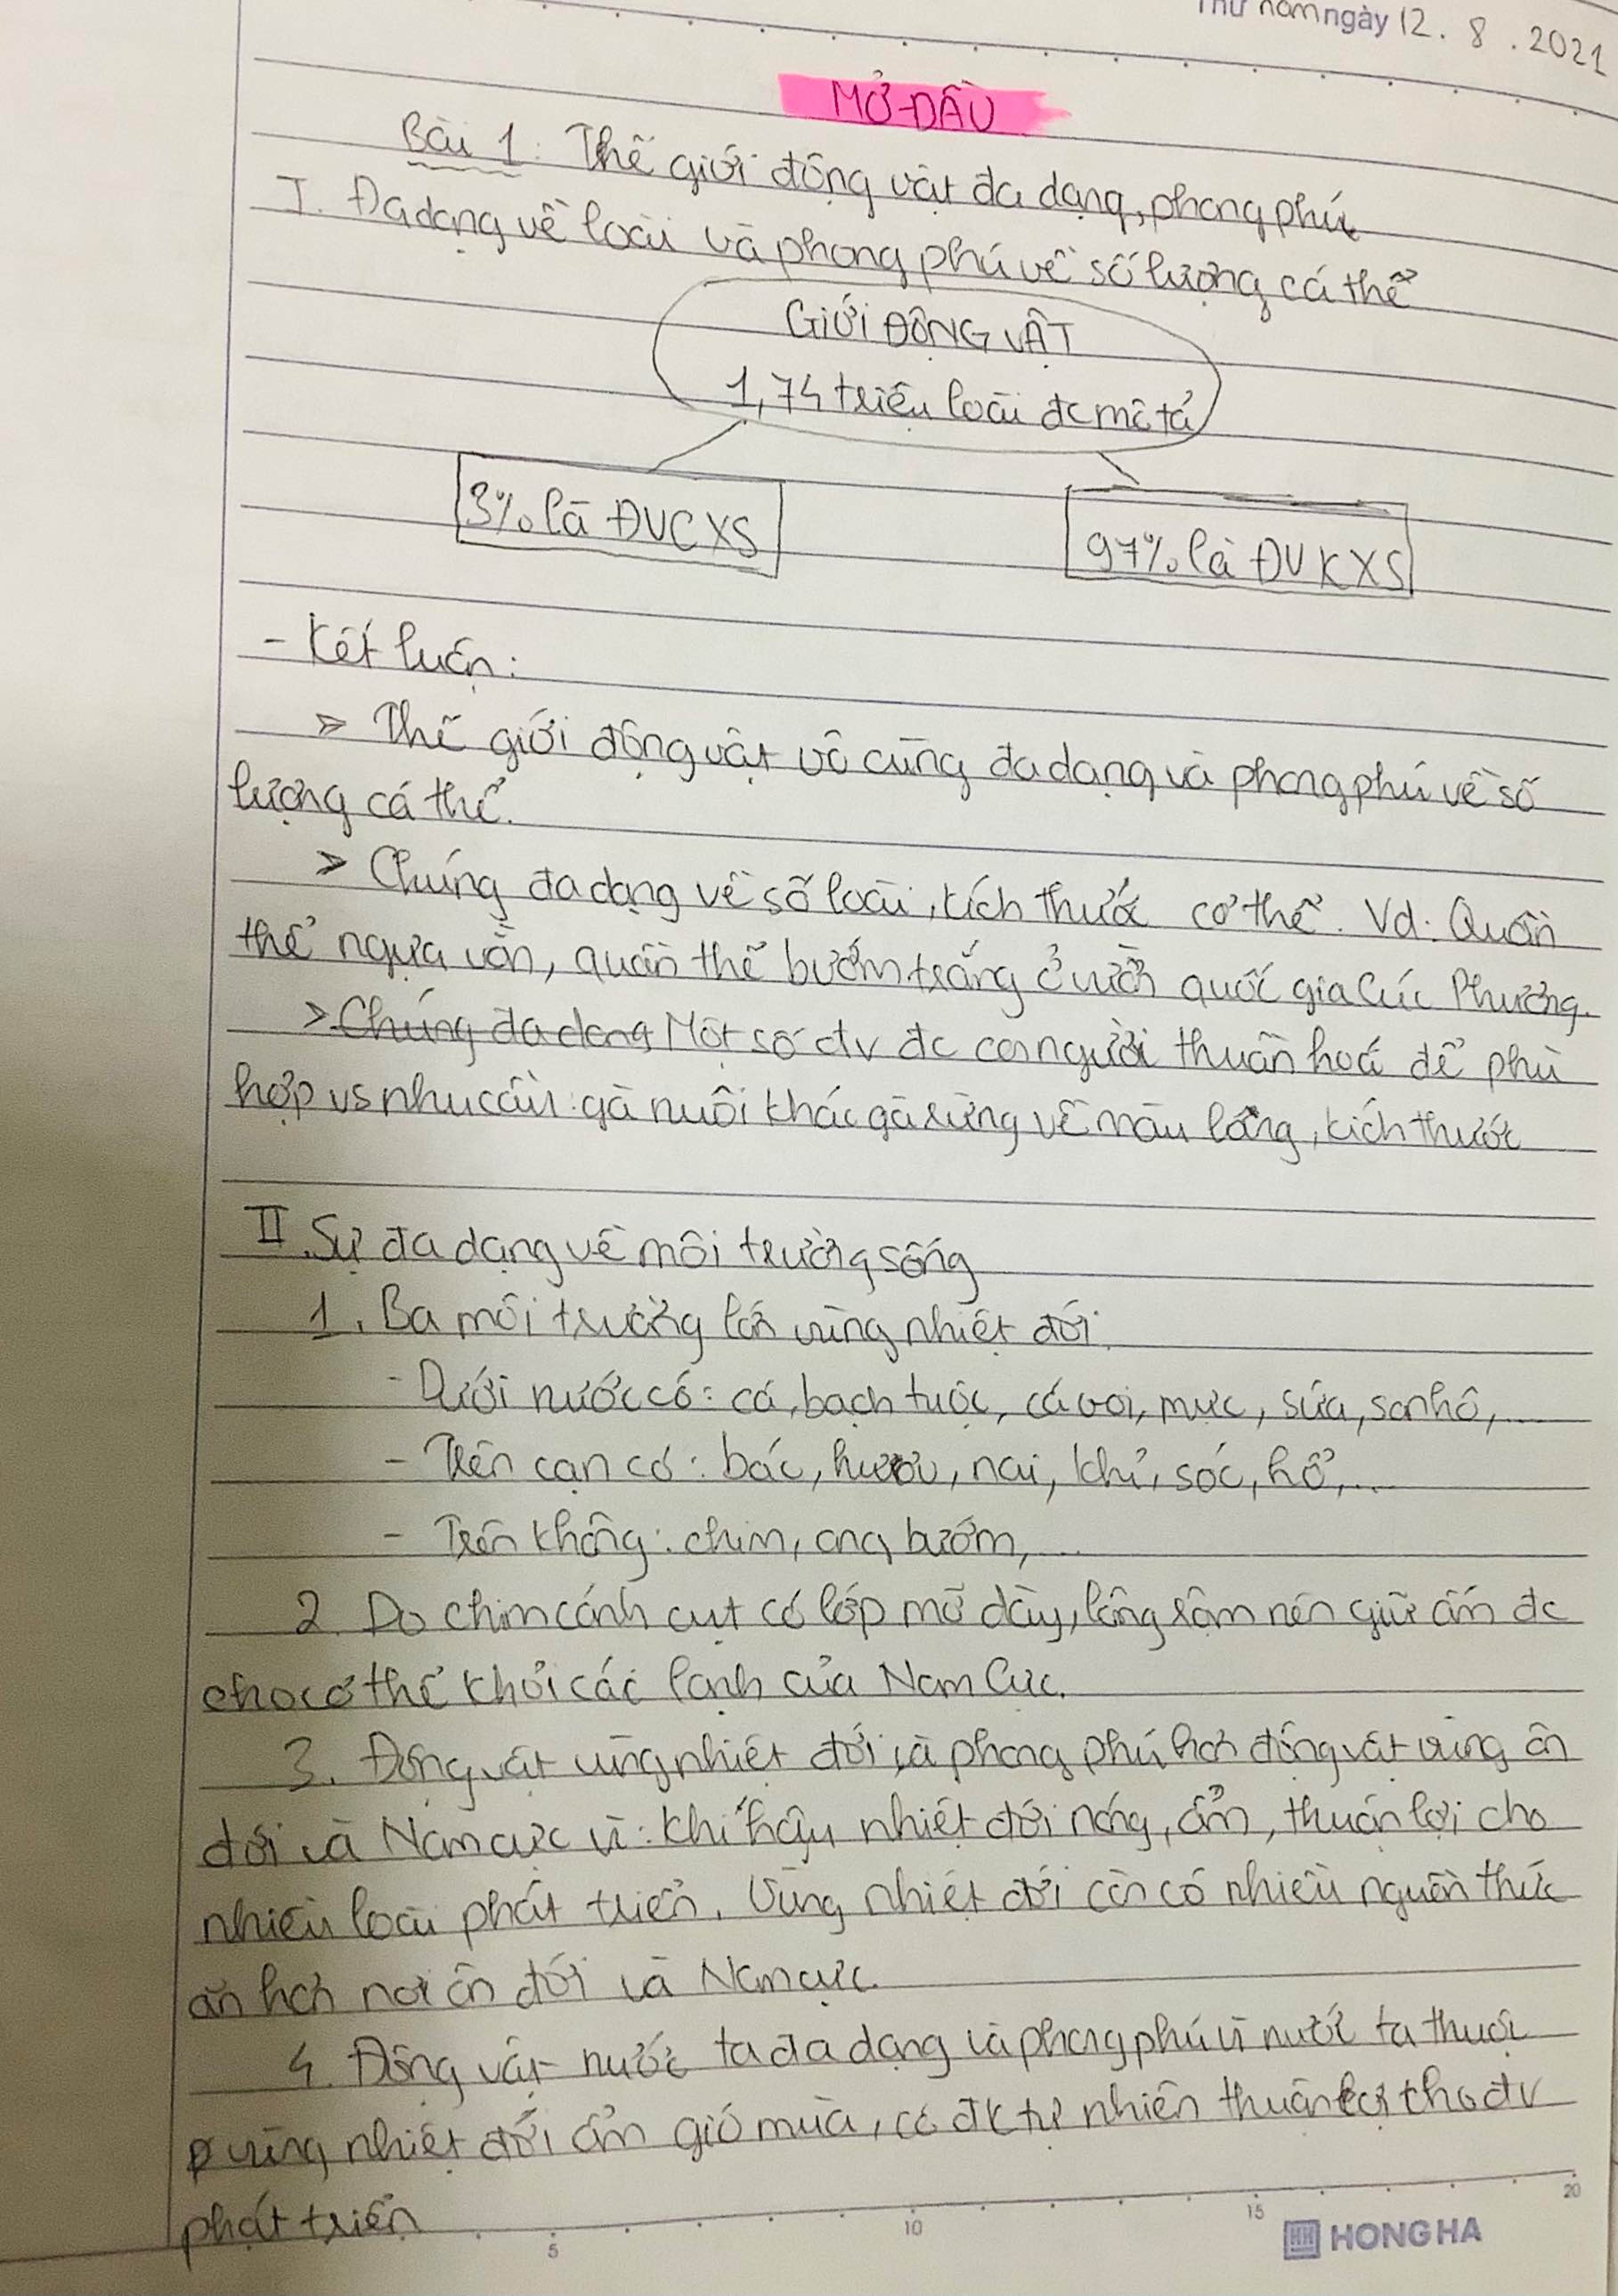 Thứ năm ngày 12.8.2021
MỞ ĐẦU
Bài 1: Thế giới động vật đa dạng, phong phú
I. Đa dạng về loài và phong phú về số lượng cá thể
GIỚI ĐỘNG VẬT
1,74 triệu loài đc mô tả
3% là ĐVCXS
97% là ĐVKXS
- Kết luận:
> Thế giới động vật vô cùng đa dạng và phong phú về số
lượng cá thể.
> Chúng đa dạng về số loài, kích thước cơ thể. Vd: Quần
thể ngựa vằn, quần thể bướm trắng ở vườn quốc gia Cúc Phương.
> Chúng đa dạng Một số đv đc con người thuần hoá để phù
hợp vs nhu cầu: gà nuôi khác gà rừng về màu lông, kích thước
II. Sự đa dạng về môi trường sống
1. Ba môi trường lớn vùng nhiệt đới.
- Dưới nước có: cá, bạch tuộc, cá voi, mực, sứa, san hô,....
- Trên cạn có: báo, hươu, nai, khỉ, sóc, hổ,...
- Trên không: chim, ong, bướm,...
2. Do chim cánh cụt có lớp mỡ dày, lông rậm nên giữ ấm đc
cho cơ thể khỏi các lạnh của Nam Cực.
3. Động vật vùng nhiệt đới và phong phú hơn động vật vùng ôn
đới và Nam cực vì: khí hậu nhiệt đới nóng, ẩm, thuận lợi cho
nhiều loài phát triển. Vùng nhiệt đới còn có nhiều nguồn thức
ăn hơn nơi ôn đới và Nam cực.
4. Động vật nước ta đa dạng và phong phú vì nước ta thuộc
vùng nhiệt đới ẩm gió mùa, có đk tự nhiên thuận lợi cho đv
phát triển
5 10 15 20
HH HONG HA